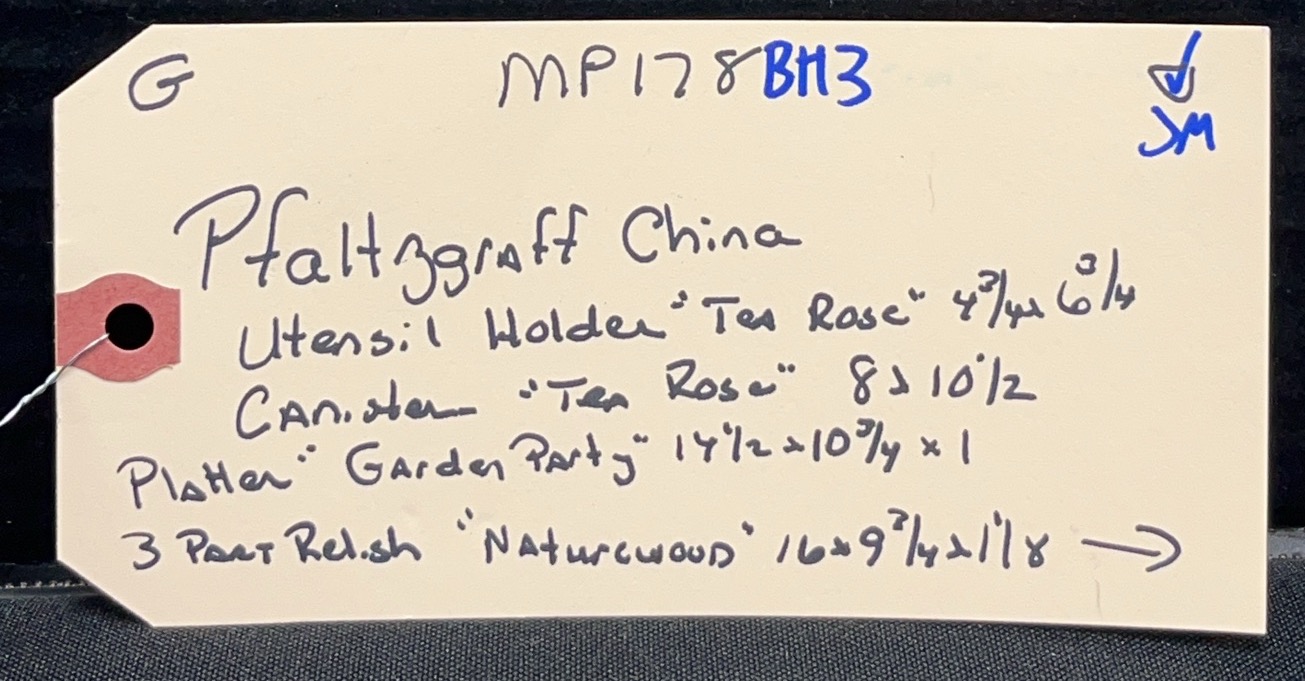 G MP178BH3 ✓
JM
Pfaltzgraff China
Utensil Holder "Tea Rose" 4 3/4 x 6 3/4
Canister "Tea Rose" 8 x 10 1/2
Platter "Garden Party" 14 1/2 x 10 3/4 x 1
3 Part Relish "Naturewood" 16 x 9 3/4 x 1 1/8 →